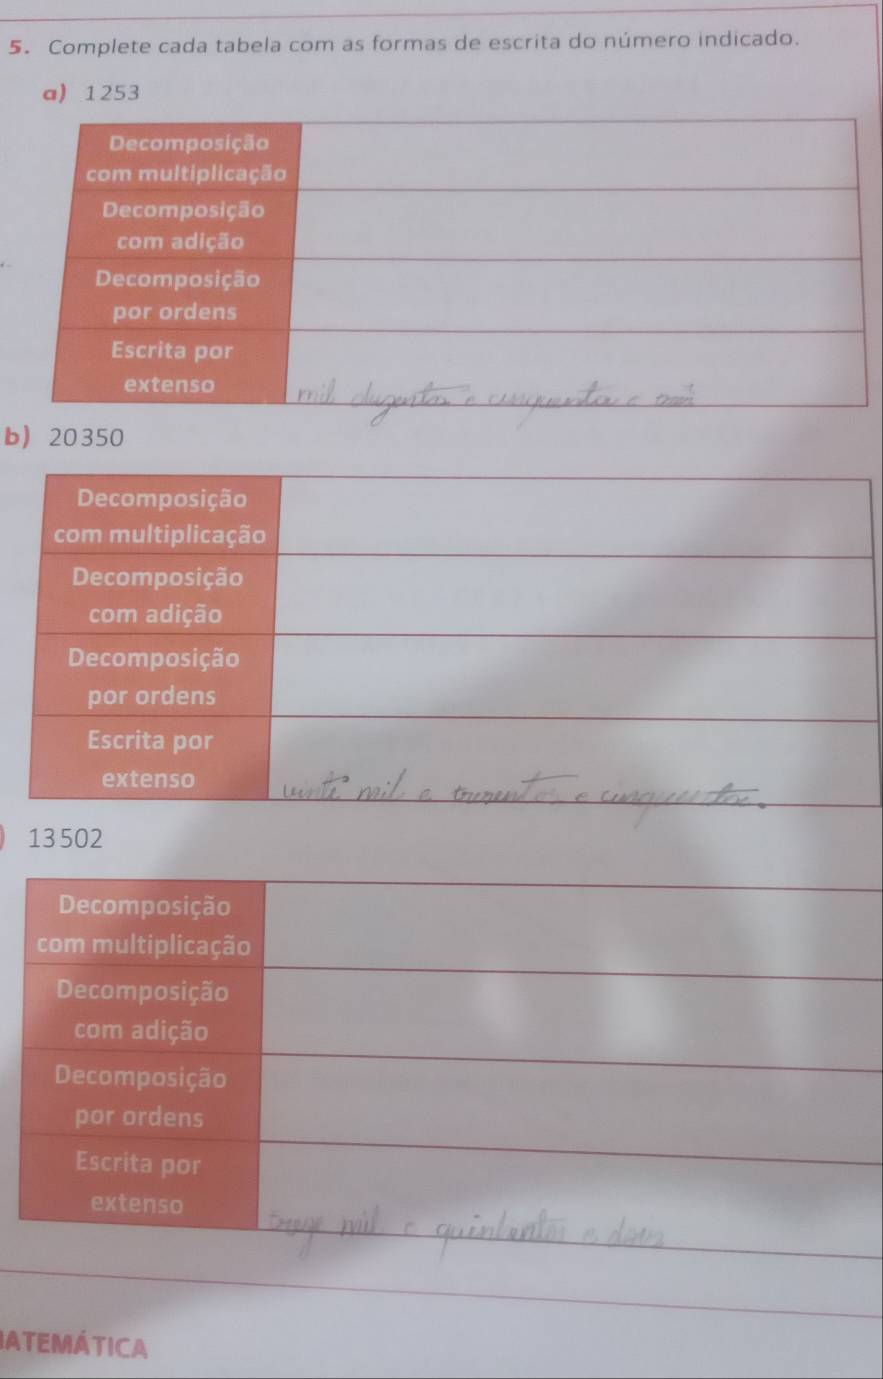 5. Complete cada tabela com as formas de escrita do número indicado.
a) 1253
Decomposição
com multiplicação
Decomposição
com adição
Decomposição
por ordens
Escrita por
extenso
mil duzentos e cinquenta e três
b) 20350
Decomposição
com multiplicação
Decomposição
com adição
Decomposição
por ordens
Escrita por
extenso
vinte mil e trezentos e cinquenta.
) 13502
Decomposição
com multiplicação
Decomposição
com adição
Decomposição
por ordens
Escrita por
extenso
treze mil e quinhentos e dois
ATEMÁTICA